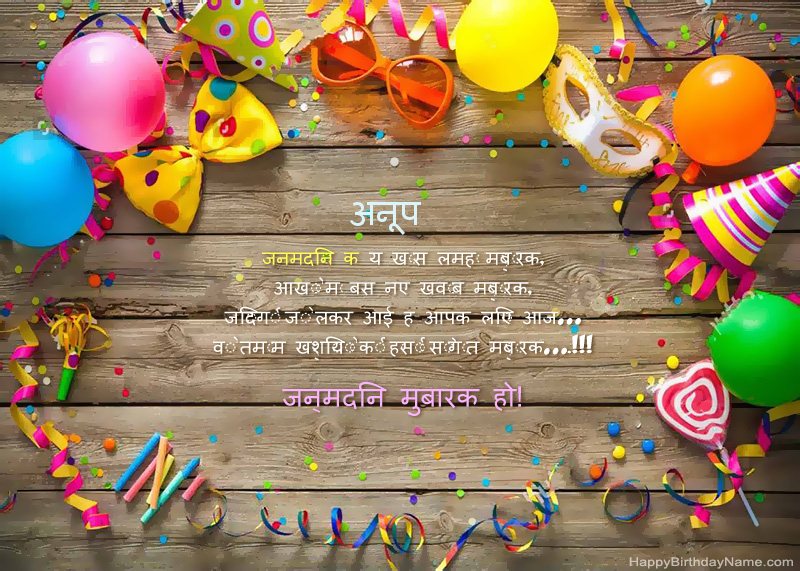 अनूप
जनमदनि क य खास लमहा मबारक,
आखों म बस नए खवाब मबारक,
जदिगी जो लेकर आई ह आपक लएि आज...
वो तमाम खशयों की हसी सौगात मबारक...!!!
जन्मदनि मुबारक हो!
HappyBirthdayName.com